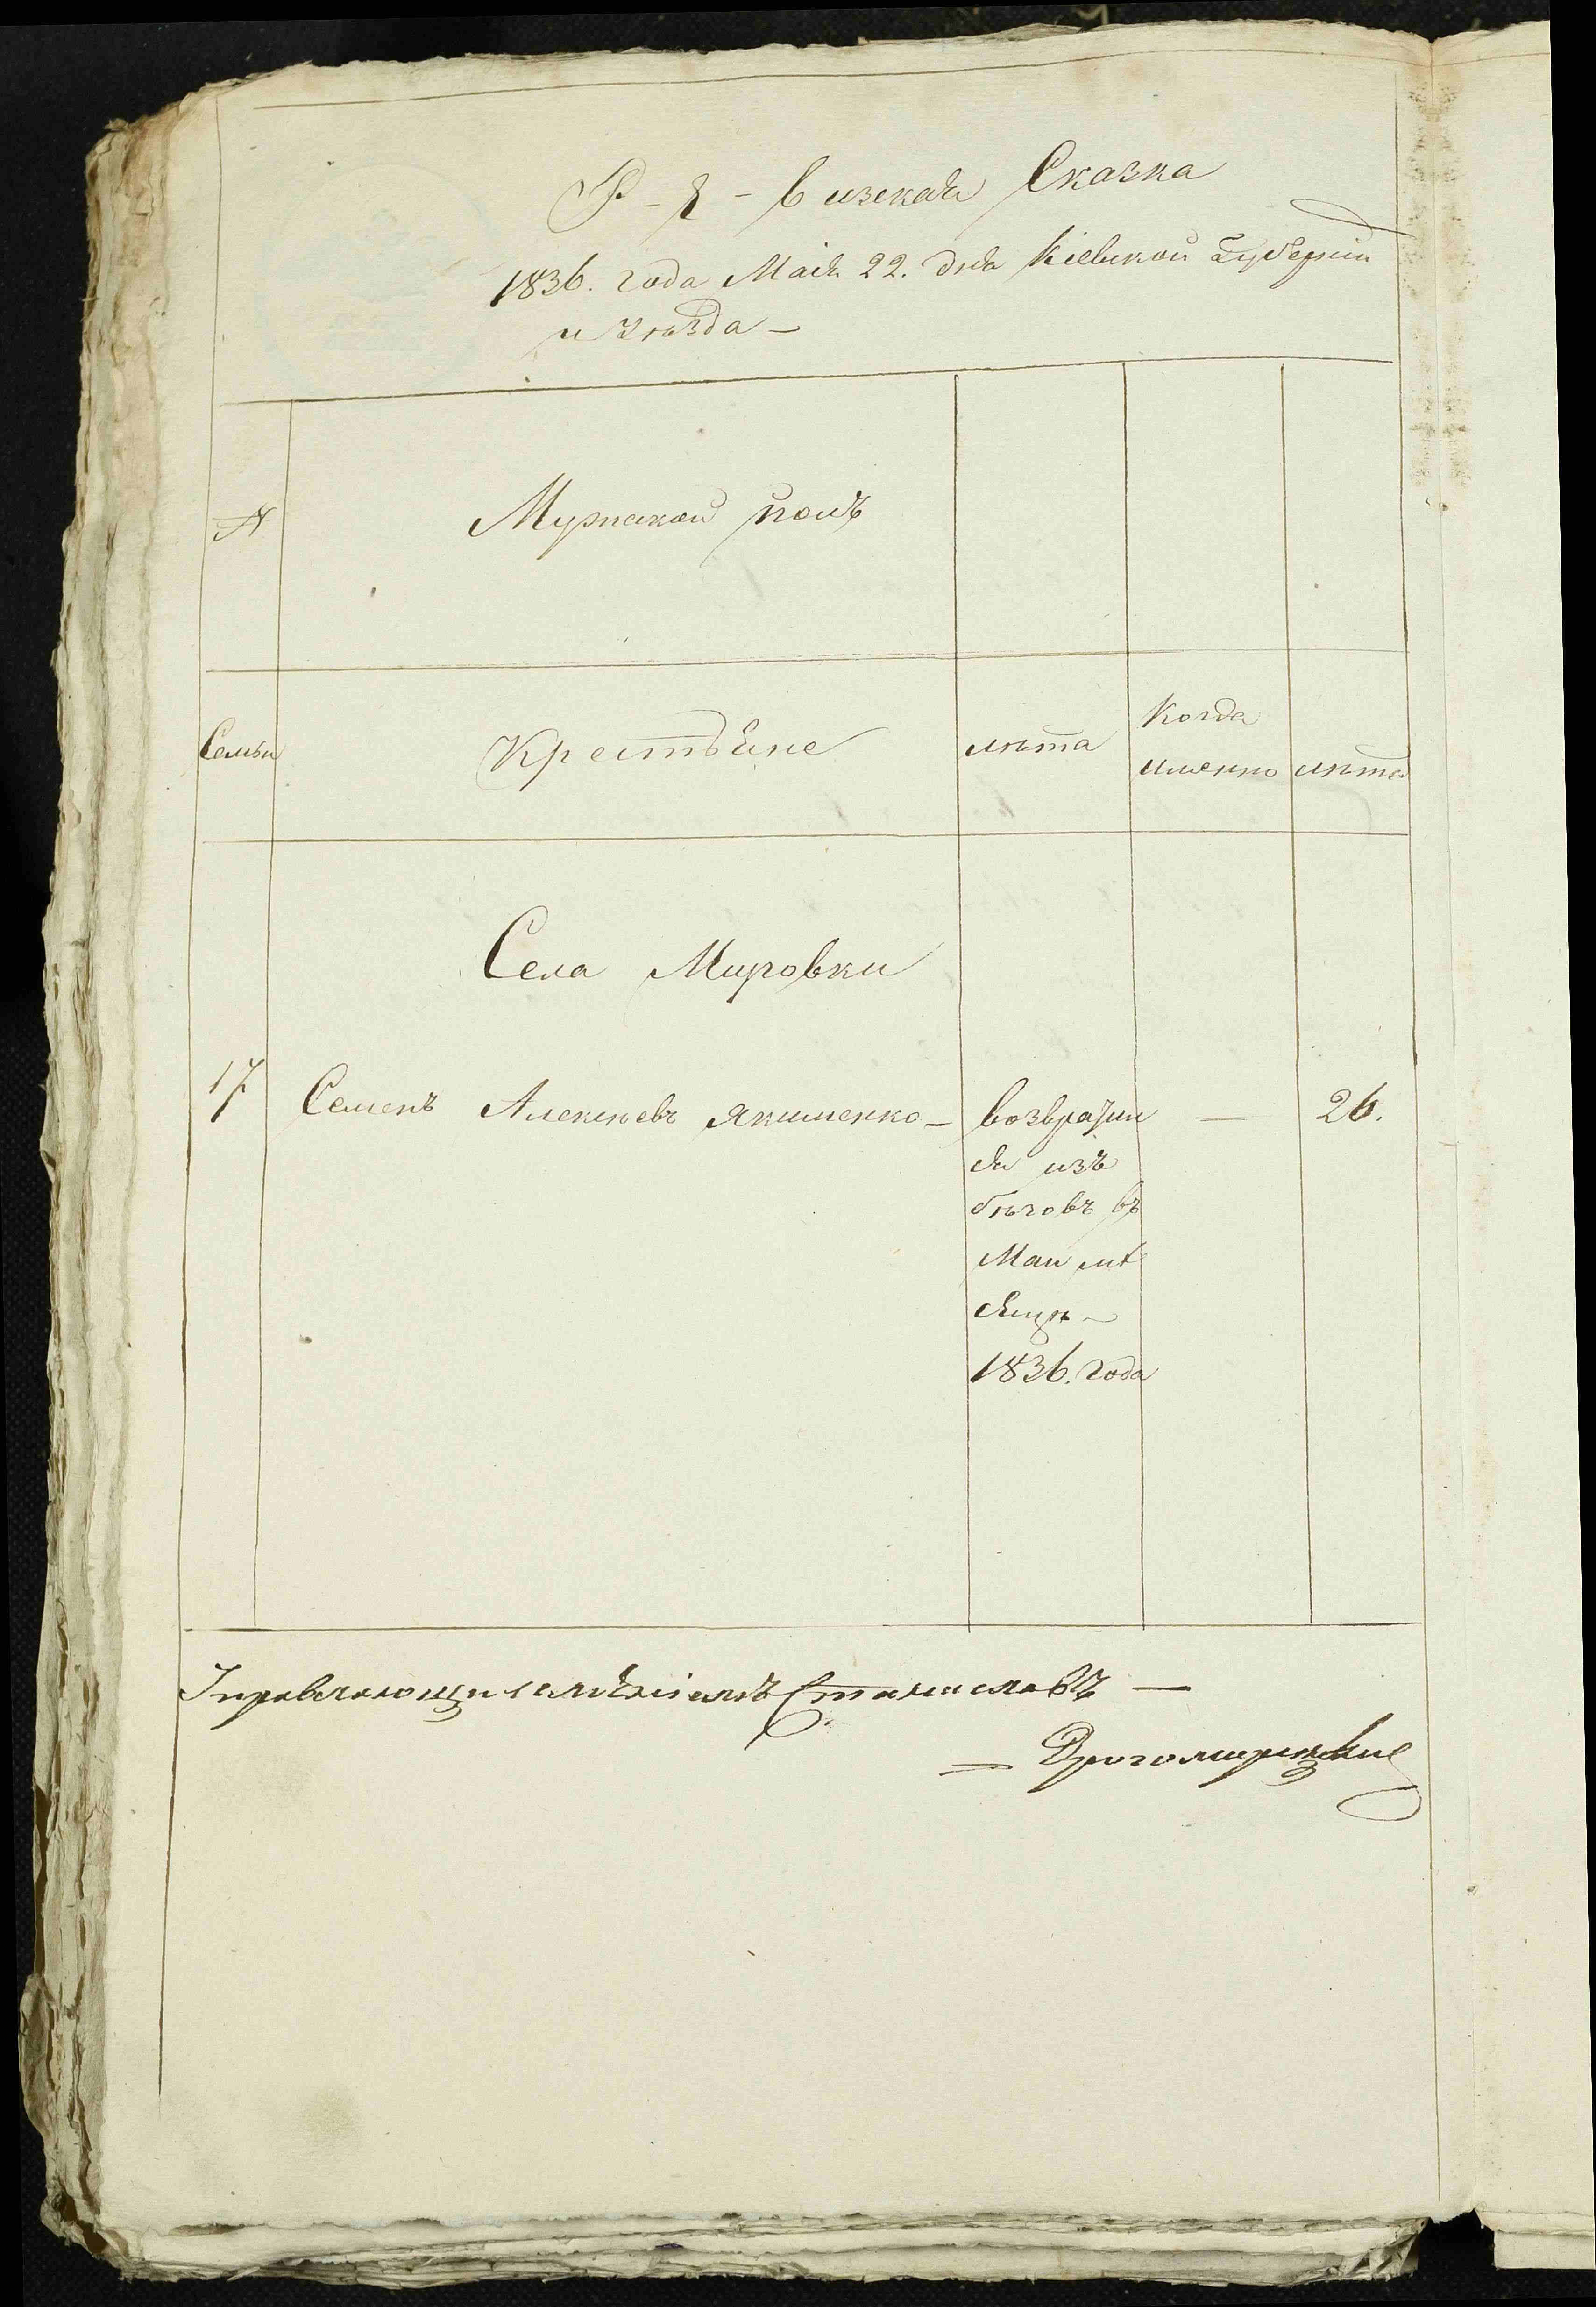 Р-Е-визская Сказка
1836. года Маія 22. дня Кіевской Губерніи
и уѣзда —
№
Мужеской полъ
Семьи
Крестьяне
лѣта
Когда
именно
лѣта
Села Мировки
17 Семенъ Алексѣевъ Якименко — возврати — 26.
ся изъ
бѣговъ въ
Маи мѣ
сяцѣ —
1836. года
Управляющи имѣніемъ Станиславъ —
= Дрогомирецкие